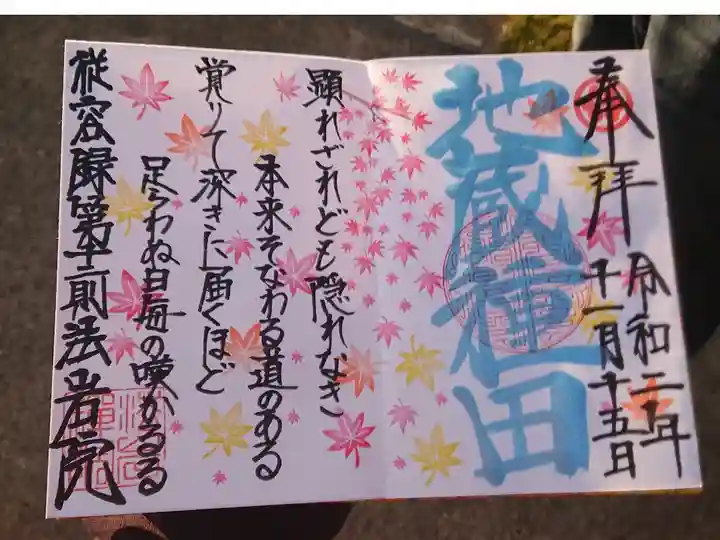 奉拝
令和二年
十一月十五日
地蔵種田
顕れざれども隠れなき
本来そなわる道のある
覚りて深きに届くほど
足らわぬ自毎の嘆かるる
従容録第十二則法岩院